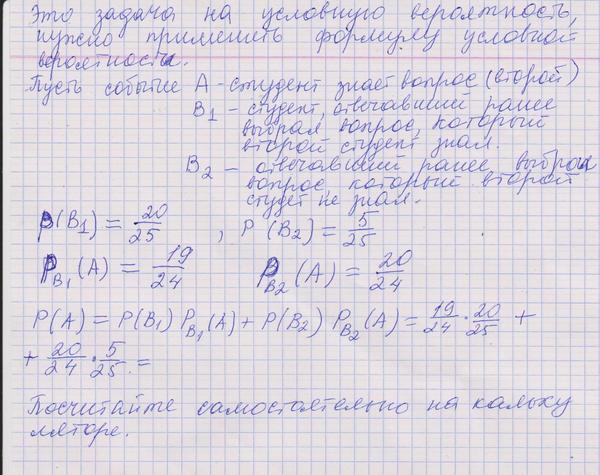 Это задача на условную вероятность,
нужно применить формулу условной
вероятности.
Пусть событие A - студент знает вопрос (второй)
B₁ - студент, отвечавший ранее
выбрал вопрос, который
второй студент знал.
B₂ - отвечавший ранее выбрал
вопрос, который второй
студет не знал.
P(B₁) = 20/25 , P(B₂) = 5/25
P_B₁(A) = 19/24 P_B₂(A) = 20/24
P(A) = P(B₁) P_B₁(A) + P(B₂) P_B₂(A) = 19/24 · 20/25 +
+ 20/24 · 5/25 =
Посчитайте самостоятельно на кальку
ляторе.